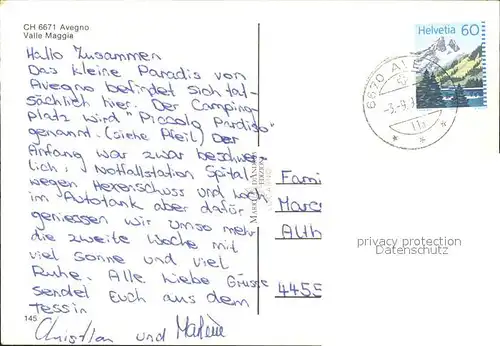 CH 6671 Avegno
Valle Maggia
Hallo Zusammen
Das kleine Paradis von
Avegno befindet sich tat-
sächlich hier. Der Camping-
platz wird "Piccolo Pardiso"
genannt. (siehe Pfeil) Der
Anfang war zwar beschwer-
lich, Notfallstation Spital
wegen Hexenschuss und Loch
im Autotank aber dafür
geniessen wir umso mehr
die zweite Woche mit
viel Sonne und viel
Ruhe. Alle liebe Grüsse
sendet Euch aus dem
Tessin
Christian und Marlène
145
Helvetia 60
6670 AV
-3.-9.
Fami
Marc
Alth
4455
privacy protection
Datenschutz